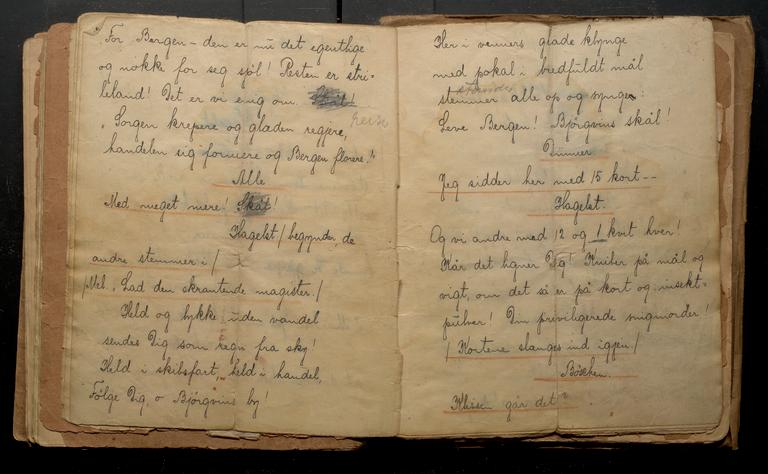 For Bergen - den er nu det egentlige
og nokke for seg sjøl! Resten er stri-
leland! Det er vi enig om. Skål!
"Sorgen krepere og glæden regjere,
reise
handelen sig formere og Bergen florere!"
Alle
Med meget mere! Skål!
Hagelst / begynder, de
andre stemmer i /
/ Mel. Lad den skrantende magister. /
Held og lykke uden vandel
sendes Dig som regn fra sky!
Held i skibsfart, held i handel,
Følge Dig, o Bjørgvins by!
Her i venners glade klynge
med pokal i bredfuldt mål
stemmer alle op og synge:
Leve Bergen! Bjørgvins skål!
Dunner
Jeg sidder her med 15 kort --
Hagelst.
Og vi andre med 12 og 1 kvit hver!
Når det ligner Dig! Kniber på mål og
vigt, om det så er på kort og insekt-
pulver! Din priviligerede snigmorder!
/ Kortene slanges ind igjen /
Bøschen.
Klissen går det